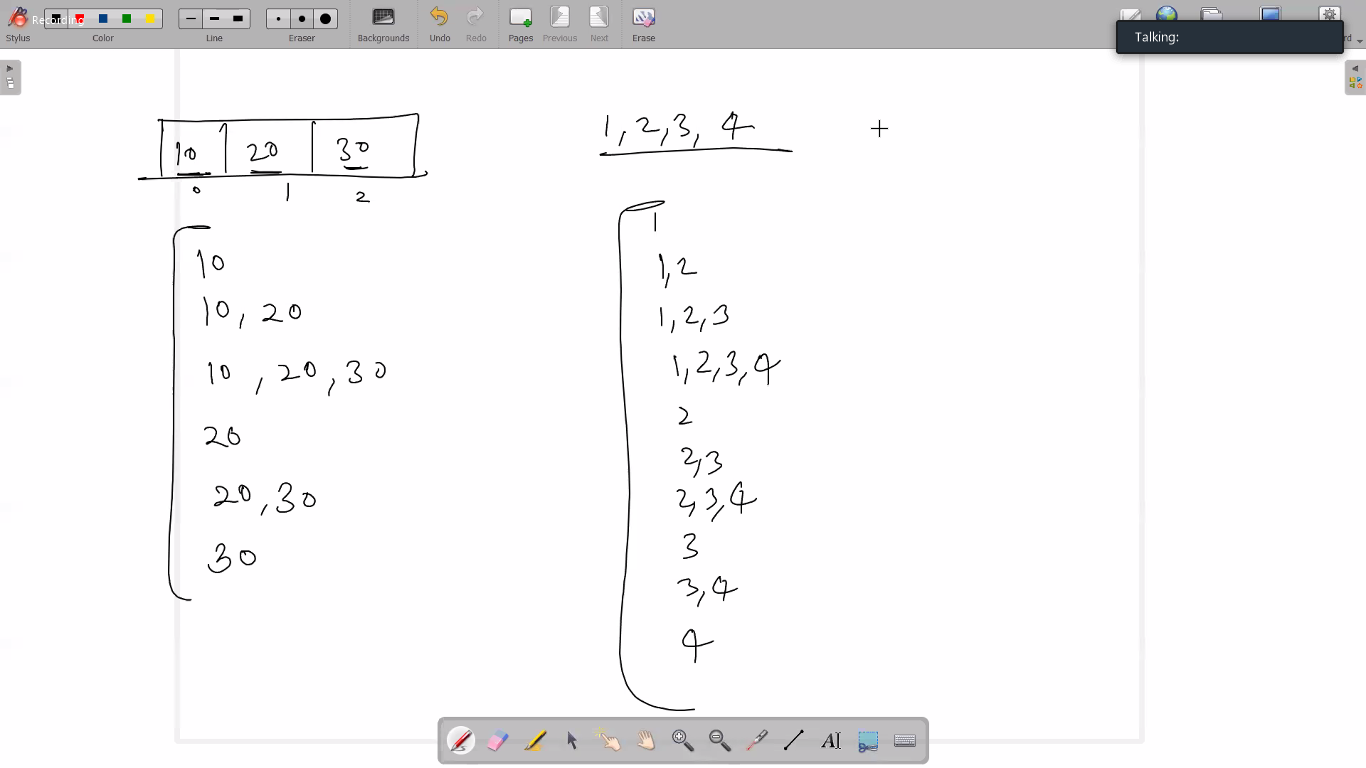 Recording
Stylus Color Line Eraser Backgrounds Undo Redo Pages Previous Next Erase
Talking:
10 20 30
0 1 2
10
10, 20
10, 20, 30
20
20, 30
30
1, 2, 3, 4
1
1, 2
1, 2, 3
1, 2, 3, 4
2
2, 3
2, 3, 4
3
3, 4
4